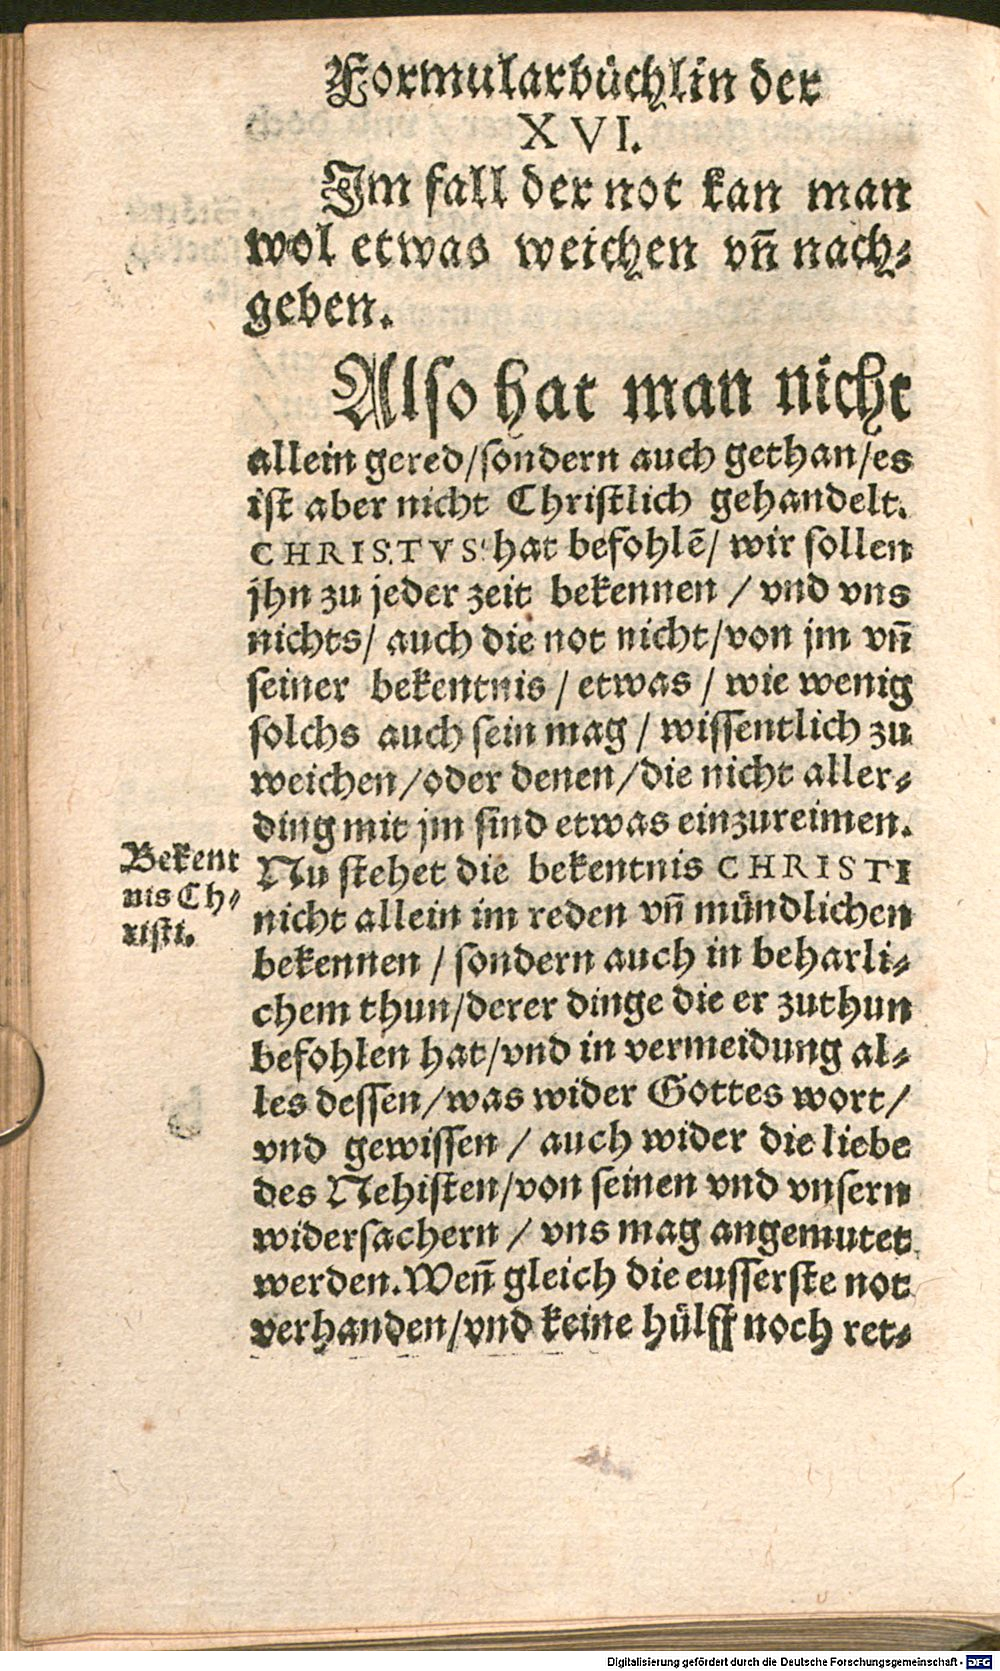 Formularbüchlin der
XVI.
Im fall der not kan man
wol etwas weichen vn̄ nach⸗
geben.
Also hat man nicht
allein gered/sondern auch gethan/es
ist aber nicht Christlich gehandelt.
CHRISTVS hat befohlē/ wir sollen
jhn zu jeder zeit bekennen / vnd vns
nichts/ auch die not nicht/von jm vn̄
seiner bekentnis / etwas / wie wenig
solchs auch sein mag / wissentlich zu
weichen/oder denen/die nicht aller⸗
ding mit jm sind etwas einzureimen.
Bekent
nis Ch⸗
risti.
Nu stehet die bekentnis CHRISTI
nicht allein im reden vn̄ mündlichen
bekennen / sondern auch in beharli⸗
chem thun/derer dinge die er zuthun
befohlen hat/vnd in vermeidung al⸗
les dessen/was wider Gottes wort/
vnd gewissen / auch wider die liebe
des Nehisten/von seinen vnd vnsern
widersachern / vns mag angemutet
werden. Wen̄ gleich die eusserste not
verhanden/vnd keine hülff noch ret⸗
Digitalisierung gefördert durch die Deutsche Forschungsgemeinschaft - DFG